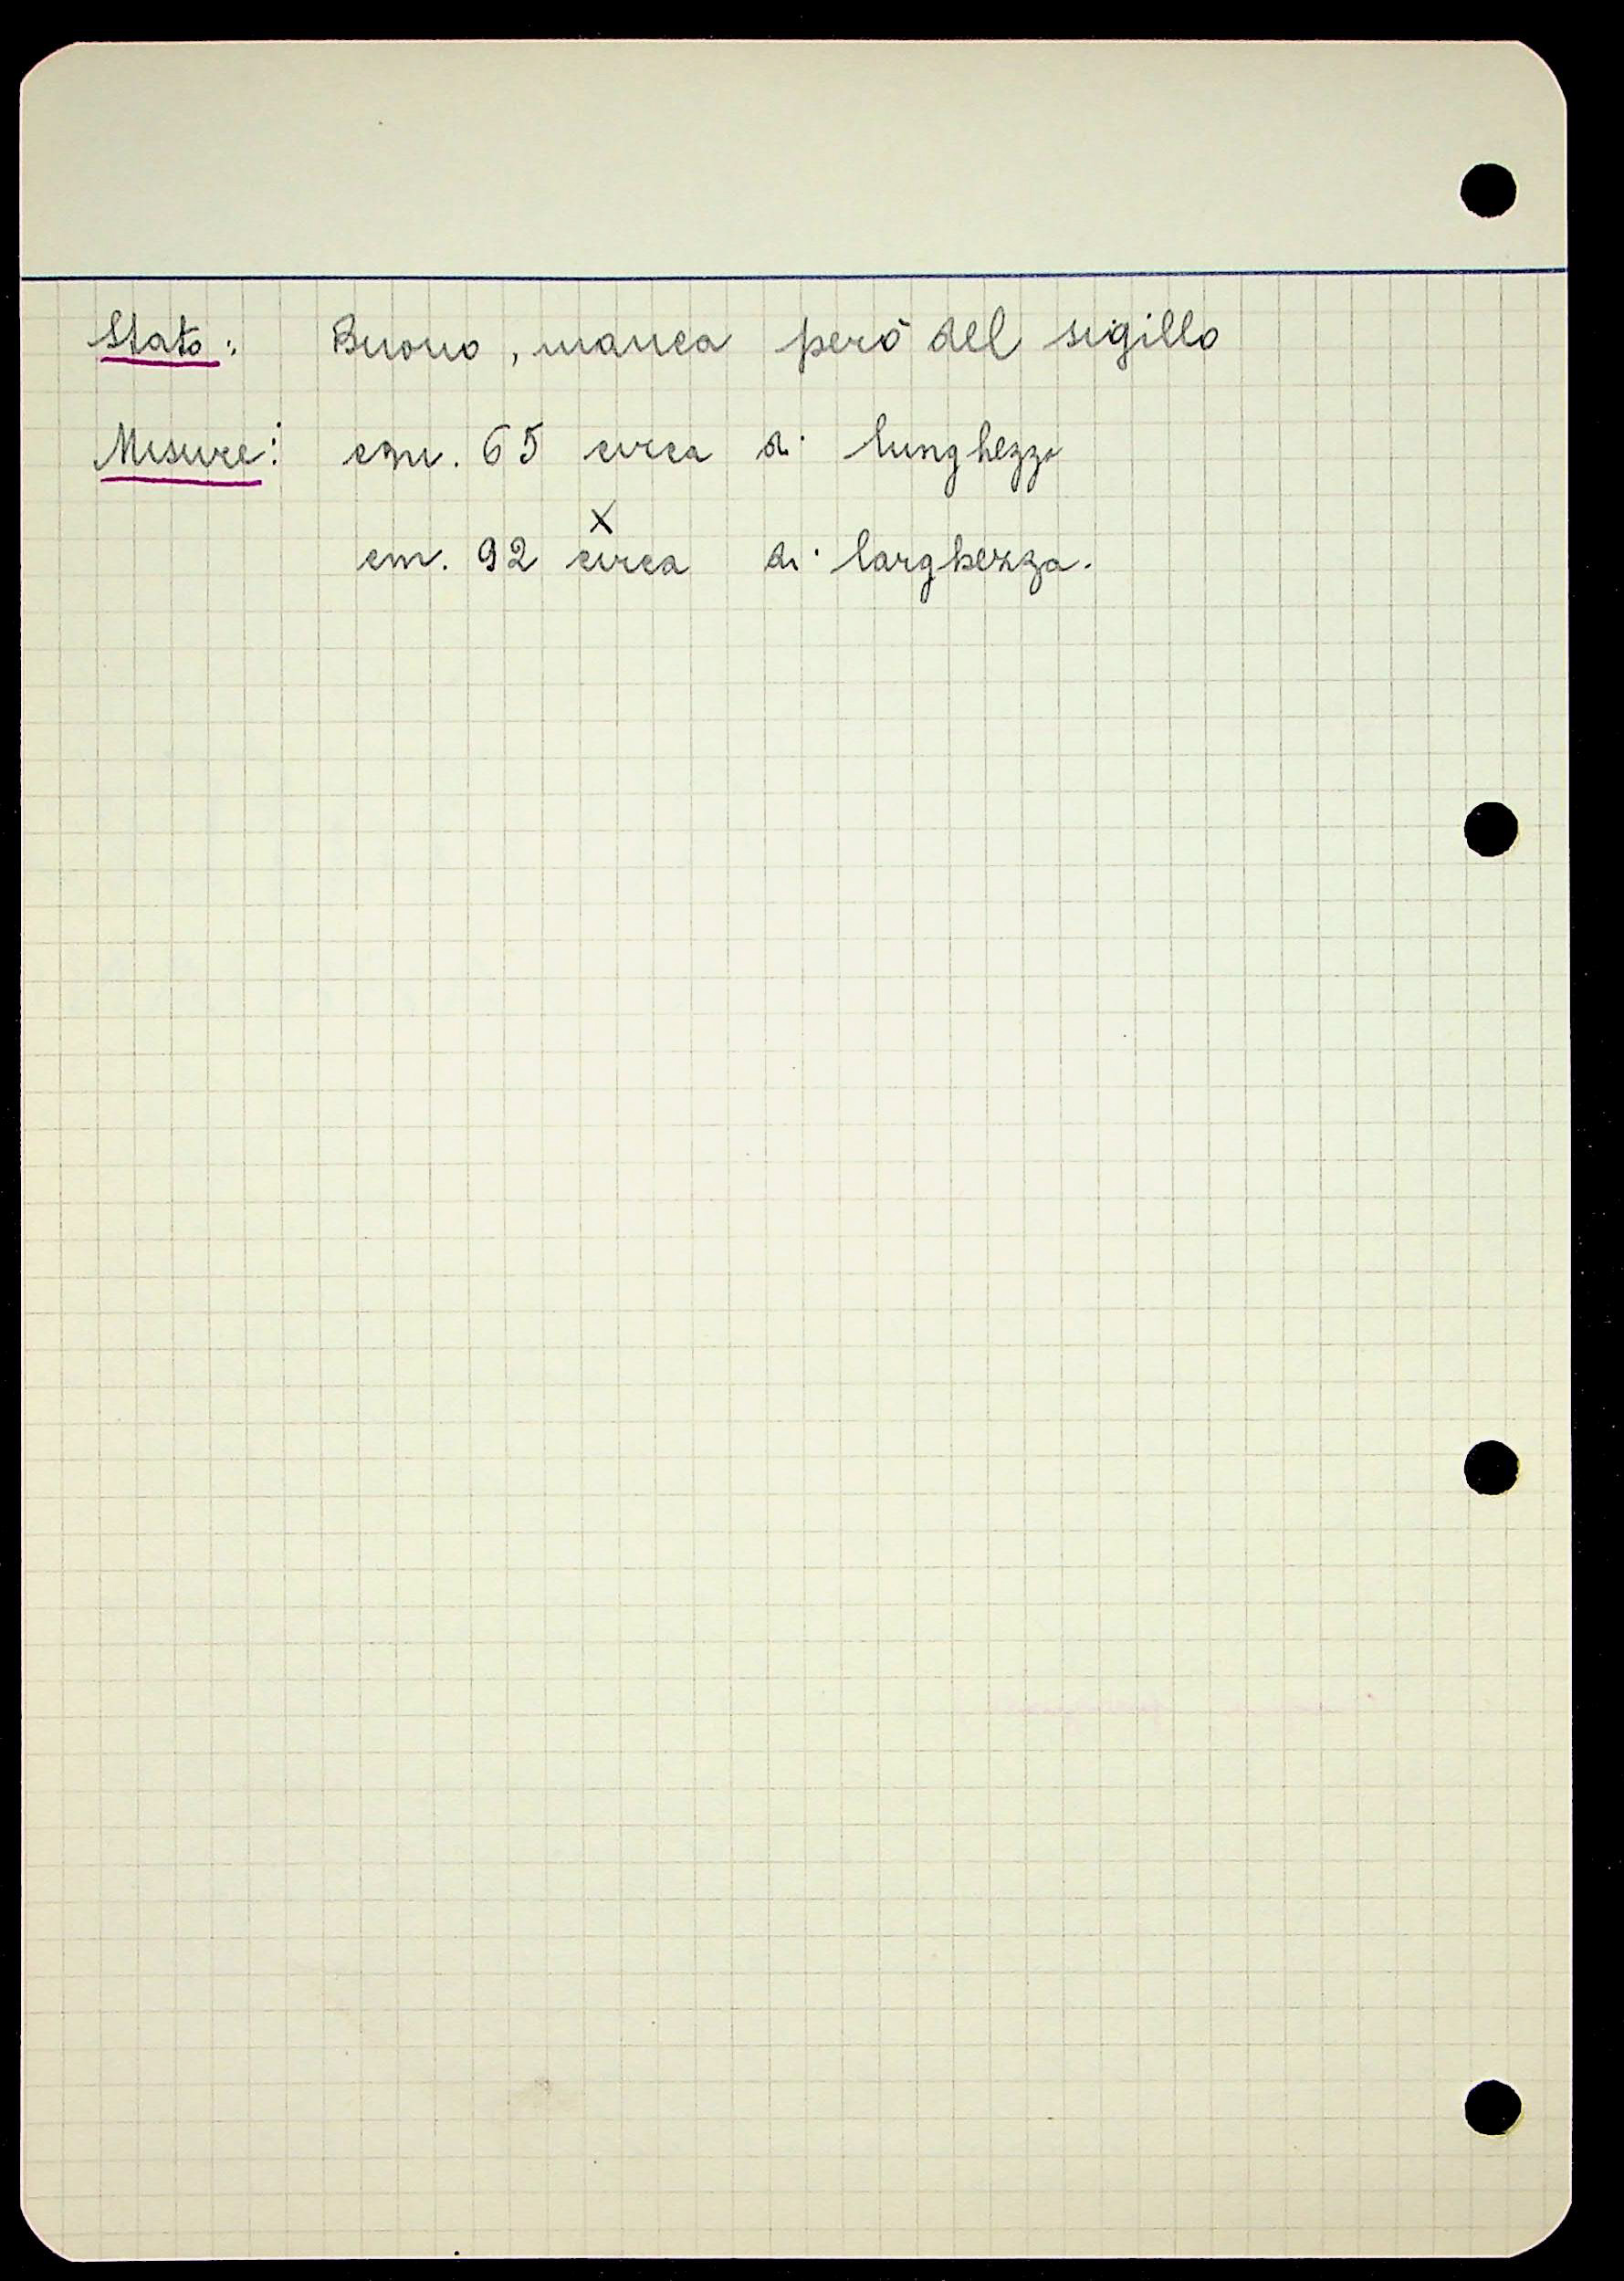 Stato: Buono, manca però del sigillo
Misure: cm. 65 circa di lunghezza
x
cm. 92 circa di larghezza.